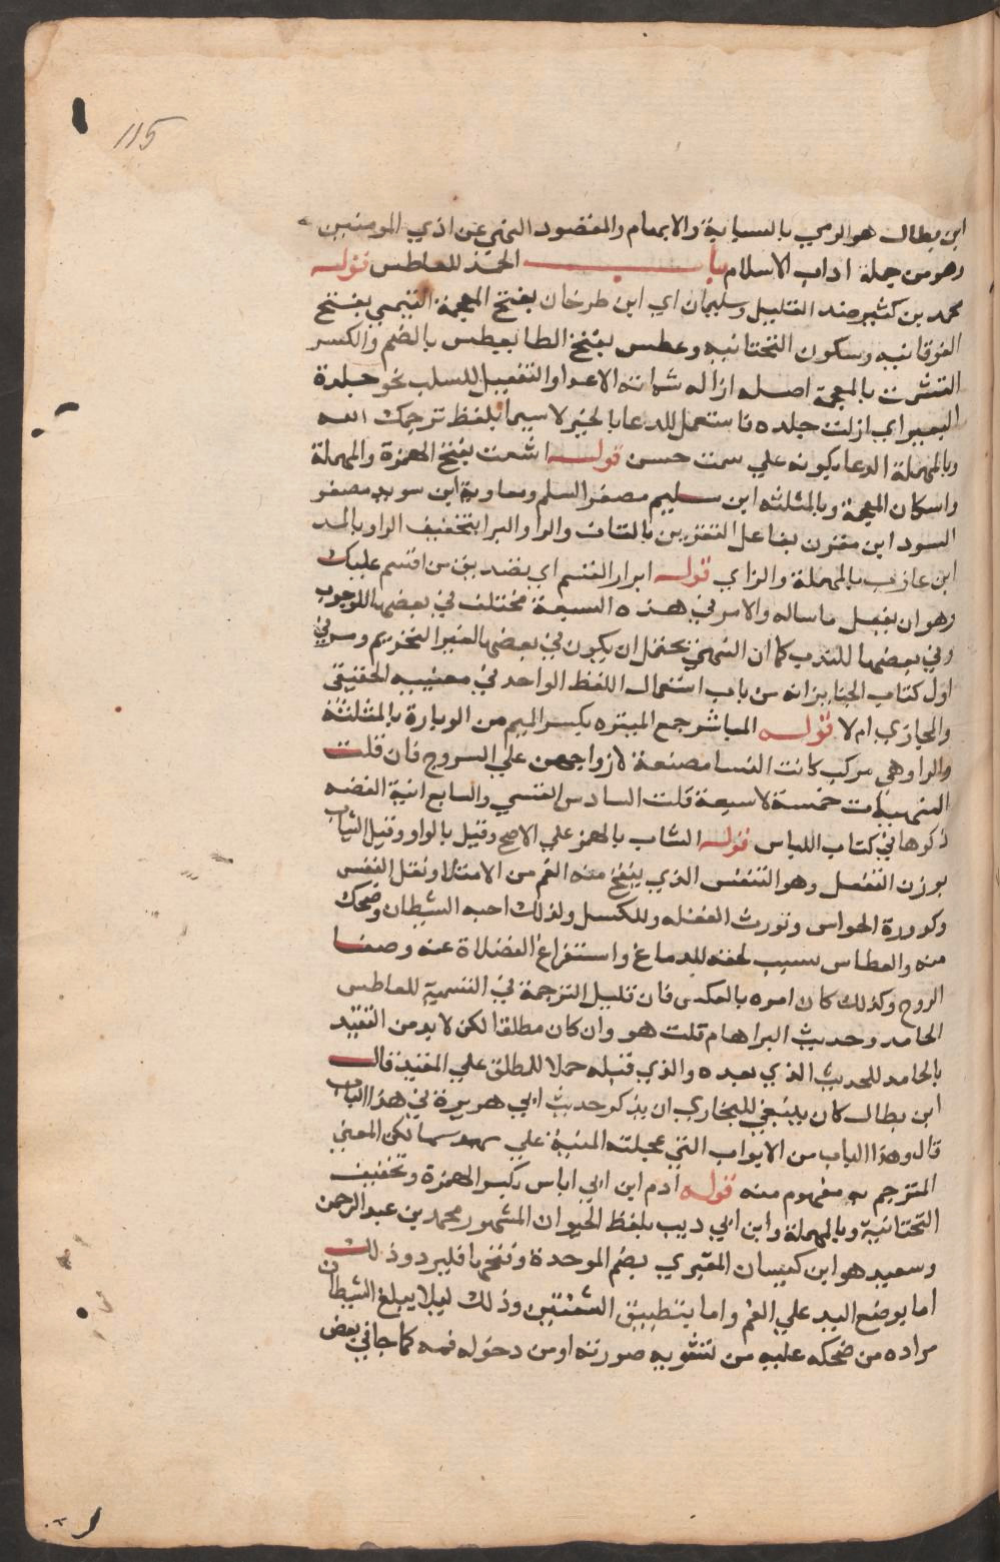 115
ابن بطال هو الرمي بالسبابة والابهام والمقصود النهي عن اذي المومنين
وهو من جملة اداب الاسلام باب الحمد للعاطس قوله
محمد بن كثير ضد القليل وسليمان اي ابن طرخان بفتح المعجمة التيمي بفتح
الفوقانيه وسكون التحتانيه وعطس بفتح الطا يعطس بالضم والكسر
التشميت بالمعجمة اصله ازاله شماتة الاعدا والتفعيل للسلب نحو جلدة
البعير اي ازلت جلده فاستعمل للدعا بالخير لا سيما بلفظ ترحمك الله
وبالمهملة الدعا بكونه علي سمت حسن قوله اشعت بفتح الهمزة والمهملة
واسكان المعجمة وبالمثلثه ابن سليم مصغر السلم ومعاوية ابن سويد مصغر
السود ابن مقرن بفاعل التقرين بالقاف والرا والبرا بتخفيف الرا وبالمد
ابن عازب بالمهملة والزاي قوله ابرار القسم اي تصديق من اقسم عليك
وهو ان يفعل ما ساله والامر في هذه السبعة مختلف في بعضها للوجوب
وفي بعضها للندب كما ان النهي يحتمل ان يكون في بعضها لغير التحريم ومر في
اول كتاب الجنايز انه من باب استعمال اللفظ الواحد في معنييه الحقيقي
والمجازي ام لا قوله المياثر جمع الميثره بكسر الميم من الوثارة بالمثلثة
والرا وهي مركب كانت النسا تصنعه لازواجهن علي السروج فان قلت
المنهيات خمسة لا سبعة قلت السادس القسي والسابع انية الفضه
ذكرها في كتاب اللباس قوله التثاب بالهمز علي الاصح وقيل بالواو وقيل التثاب
بوزن التفعل وهو التنفس الذي يفتح منه الفم من الامتلا وثقل النفس
وكدورة الحواس وتورث الغفله والكسل ولذلك احبه الشيطان وضحك
منه والعطاس سبب لخفه الدماغ واستفراغ الفضلاة عنه وصفا
الروح وكذلك كان امره بالعكس فان قلت الترجمة في التشميت للعاطس
الحامد وحديث البرا هام قلت هو وان كان مطلقا لكن لا بد من التقيد
بالحامد للحديث الذي بعده والذي قبله حملا للمطلق علي المقيد قال
ابن بطال كان ينبغي للبخاري ان يذكر حديث ابي هريرة في هذا الباب
قال وهذا الباب من الابواب التي عجلته المنية علي تهذيبها لكن المعني
المترجم به مفهوم منه قوله ادم ابن ابي اياس بكسر الهمزة وتخفيف
التحتانية وبالمهملة وابن ابي ديب بلفظ الحيوان المشهور محمد بن عبد الرحمن
وسعيد هو ابن كيسان المقبري بضم الموحدة وفتحها فليرد وذلك
اما بوضع اليد علي الفم واما بتطبيق الشفتين وذلك ليلا يبلغ الشيطان
مراده من ضحكه عليه من تشويه صورته او من دخوله فمه كما جا في بعض